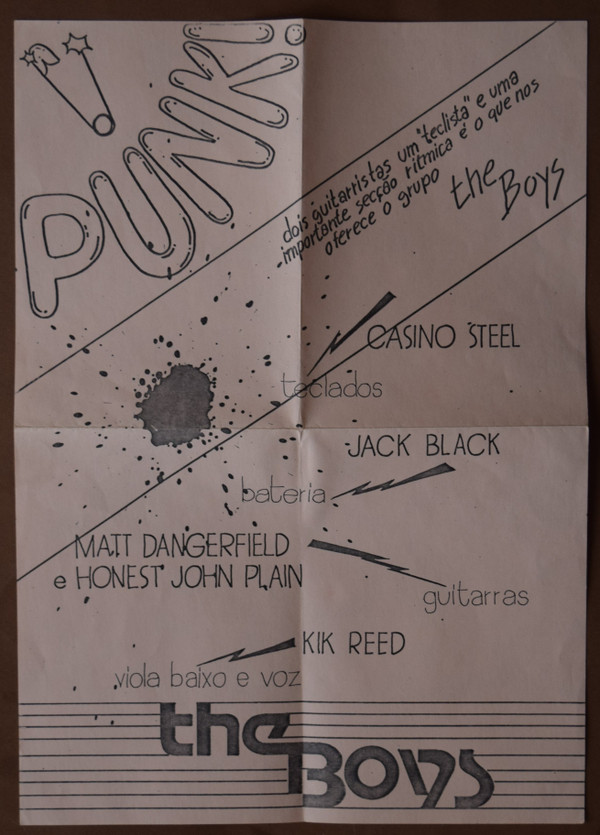 PUNK!
dois guitarristas um "teclista" e uma
importante secção rítmica é o que nos
oferece o grupo
the Boys
CASINO STEEL
teclados
JACK BLACK
bateria
MATT DANGERFIELD
e HONEST JOHN PLAIN
guitarras
KIK REED
viola baixo e voz
the
BOYS